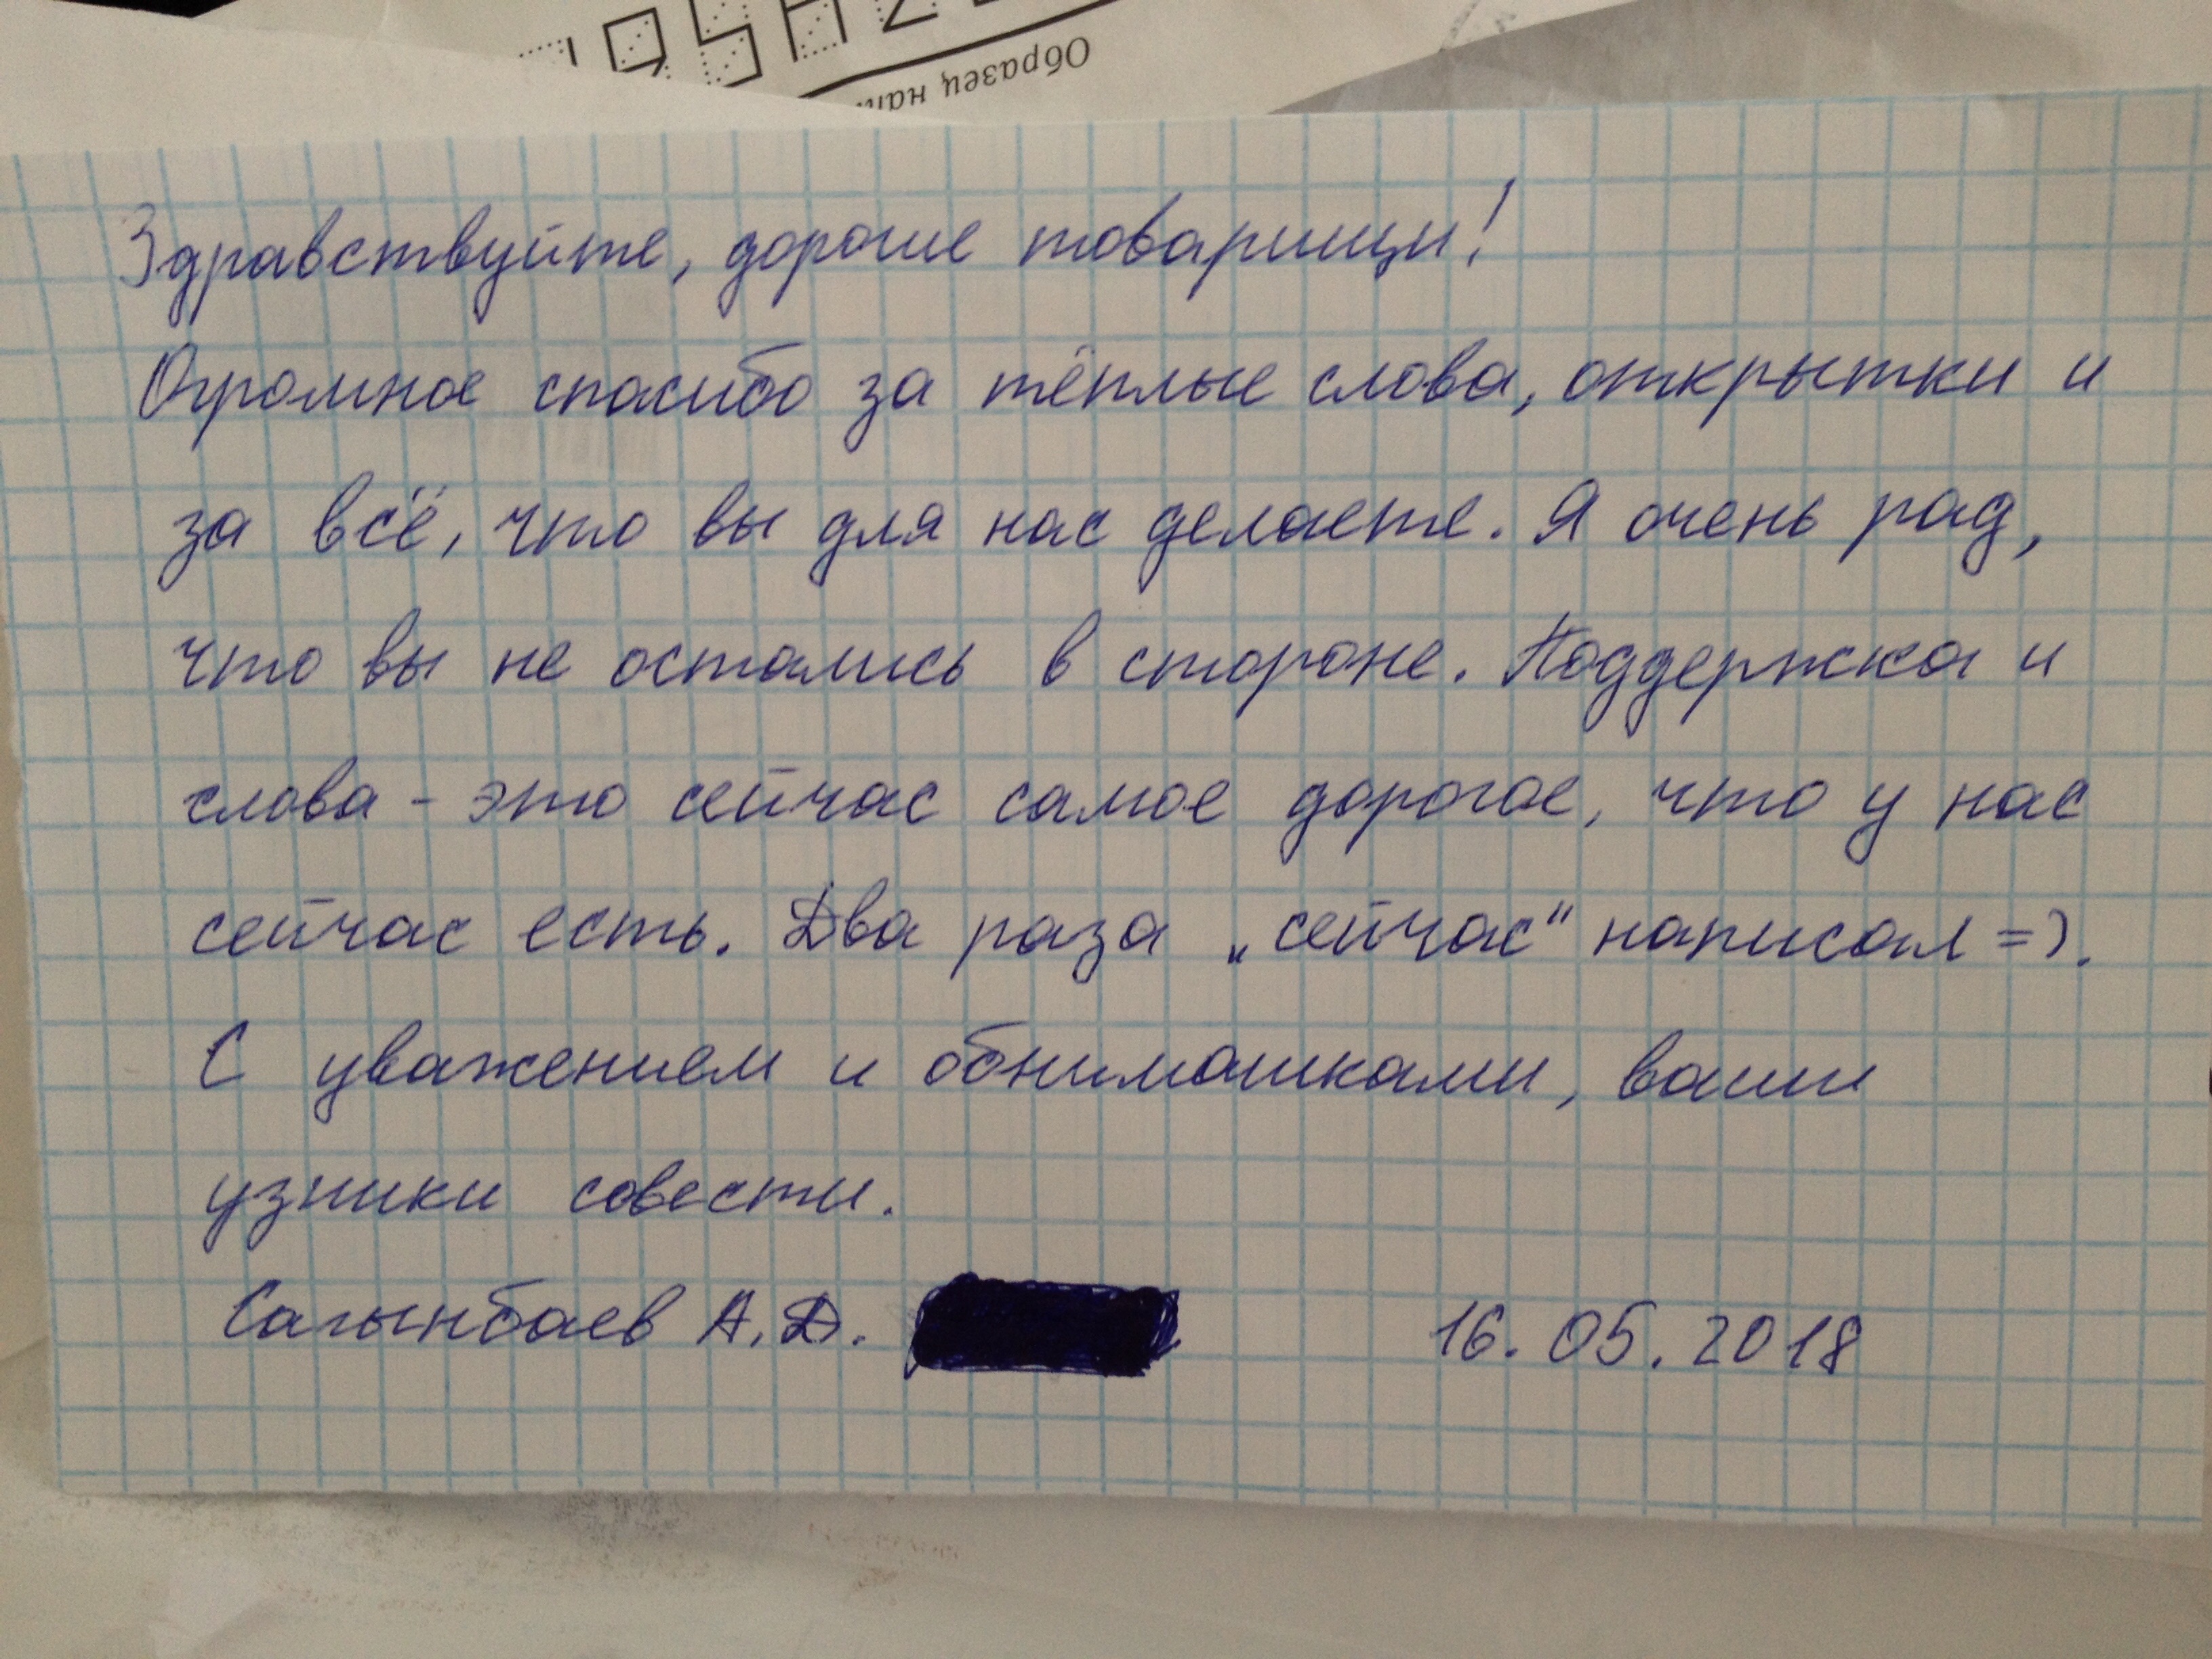 Образец нап
Здравствуйте, дорогие товарищи!
Огромное спасибо за тёплые слова, открытки и
за всё, что вы для нас делаете. Я очень рад,
что вы не остались в стороне. Поддержка и
слова - это сейчас самое дорогое, что у нас
сейчас есть. Два раза „сейчас" написал =).
С уважением и обнимашками, ваши
узники совести.
Сагынбаев А.Д.
16.05.2018